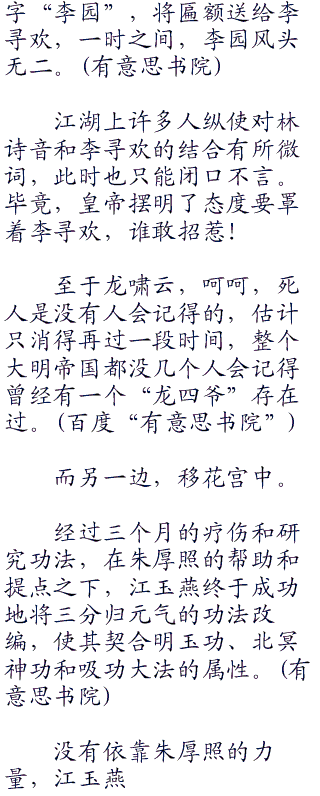 字“李园”，将匾额送给李
寻欢，一时之间，李园风头
无二。(有意思书院)
江湖上许多人纵使对林
诗音和李寻欢的结合有所微
词，此时也只能闭口不言。
毕竟，皇帝摆明了态度要罩
着李寻欢，谁敢招惹！
至于龙啸云，呵呵，死
人是没有人会记得的，估计
只消得再过一段时间，整个
大明帝国都没几个人会记得
曾经有一个“龙四爷”存在
过。(百度“有意思书院”)
而另一边，移花宫中。
经过三个月的疗伤和研
究功法，在朱厚照的帮助和
提点之下，江玉燕终于成功
地将三分归元气的功法改
编，使其契合明玉功、北冥
神功和吸功大法的属性。(有
意思书院)
没有依靠朱厚照的力
量，江玉燕